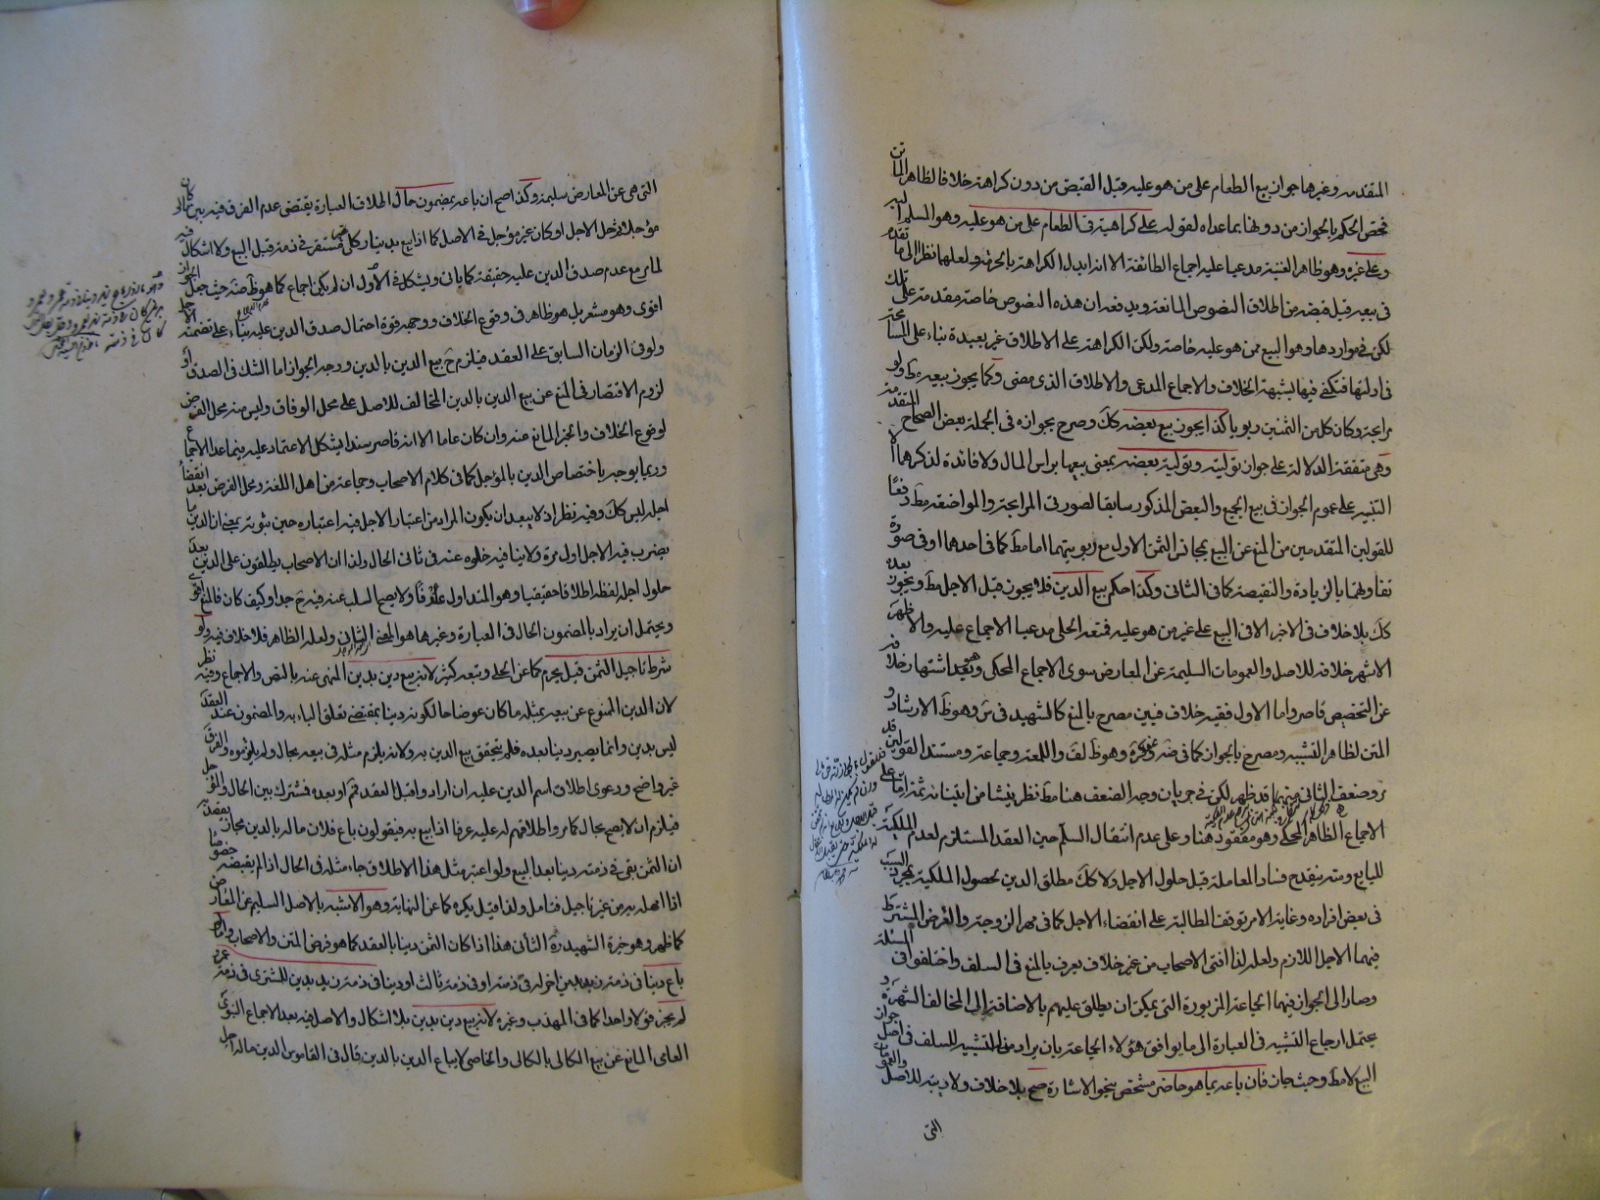 المقدمه وغيرها جواز بيع الطعام على من هو عليه قبل القبض من دون كراهته خلافا لظاهر الماتن
فخص الحكم بالجواز من دونها بما عداه لقوله على كراهية فى الطعام على من هو عليه وهو المسلم اليه
وعلى غيره وهو ظاهر الغنية مدعيا عليه اجماع الطائفة الا انه ابدل الكراهة بالحرمة ولعلهما نظرا الى ما تقدم
فى بيعه قبل قبضه من اطلاق النصوص المانعة ويدفعه ان هذه النصوص خاصة مقدمة على تلك
لكن فى مواردها وهو البيع ممن هو عليه خاصة ولكن الكراهة على الاطلاق غير بعيدة بناء على المسامحة
فى ادلتها فتكفى فيها شبهة الخلاف والاجماع المدعى والاطلاق الذى مضى وكما يجوز بيعه مط ولو
مرابحة وكان كل من الثمنين ربويا كذا يجوز بيع بعضه كك وصرح بجوازه فى الجملة بعض الصحاح المتقدمة
وهى متفقة الدلالة على جواز توليته وتولية بعضه بمعنى بيعهما براس المال ولا فائدة لذكرهما الا
التنبيه على عموم الجواز فى بيع الجميع والبعض المذكور سابقا لصورتى المرابحة والمواضعة مط دفعا
للقولين المتقدمين من المنع عن البيع بمجانس الثمن الاول مع ربويتهما اما مط كما فى احدهما او فى صورة
تفاوتهما بالزيادة والنقيصة كما فى الثانى وكذا حكم بيع الدين فلا يجوز قبل الاجل مط ويجوز بعده
كك بلا خلاف فى الاخير الا فى البيع على غير من هو عليه فمنعه الحلى مدعيا الاجماع عليه والاظهر
الاشهر خلافه للاصل والعمومات السليمة عن المعارض سوى الاجماع المحكى وهو بعد اشتهار خلافه
عن التخصيص قاصر واما الاول ففيه خلاف فبين مصرح بالمنع كالشهيد فى س وهو ظ الارشاد و
المتن لظاهر التشبيه ومصرح بالجواز كما فى ضه وكره وهو ظ لف واللمعة وجماعة ومستند القولين قد
مر وضعف الثانى منهما قد ظهر لكن فى جريان وجه الضعف هنا مط نظر ينشا من ابتنائه ثمة اما على
الاجماع الظاهر المحكى وهو مفقود هنا وعلى عدم انتقال السلم حين العقد المستلزم لعدم الملكية
للبايع ومنه ينقدح فساد المعاملة قبل حلول الاجل ولا كك مطلق الدين لحصول الملكية بمجرد السبب
فى بعض افراده وغاية الامر توقف المطالبة على انقضاء الاجل كما فى مهر الزوجة والقرض المشترط
فيهما الاجل اللازم ولعله لذا افتى الاصحاب من غير خلاف يعرف بالمنع فى السلف واختلفوا فى المسئلة
وصار الى الجواز فيها الجماعة المزبورة التى يمكن ان يطلق عليهم بالاضافة الى المخالف الشهرة و
يحتمل ارجاع التشبيه فى العبارة الى ما يوافق هؤلاء الجماعة بان يراد من التشبيه للسلف فى اصل جواز
البيع لا مط وحيث جاز فان باعه بما هو حاضر مشخص بنحو الاشارة صح بلا خلاف ولا ريبة للاصل والعمومات
التى
التى هى عن المعارض سليمة وكذا صح ان باعه بمضمون حال اطلاق العبارة يقتضى عدم الفرق فيه بين كان
مؤجلا فحل الاجل او كان غير مؤجل فى الاصل كما اذا بيع بدينار كلى غير مستقر فى ذمته قبل البيع ولا اشكال فيه
لما مر مع عدم صدق الدين عليه حقيقة كما ياتى ويشكل فى الاول ان لم يكن اجماع كما هو ظ ضه حيث جعل الجواز
اقوى وهو مشعر بل هو ظاهر فى وقوع الخلاف ووجهه قوة احتمال صدق الدين عليه بناء على تضمنه الاجل
ولو فى الزمان السابق على العقد فيلزم ح بيع الدين بالدين ووجه الجواز اما الشك فى الصدق او
لزوم الاقتصار فى المنع عن بيع الدين بالدين المخالف للاصل على محل الوفاق وليس منه محل الفرض
لوقوع الخلاف والخبر المانع منه وان كان عاما الا انه قاصر سندا يشكل الاعتماد عليه فيما عدا الاجماع
وربما يوجه باختصاص الدين بالمؤجل كما فى كلام الاصحاب وجماعة من اهل اللغة ومحل الفرض بعد انقضاء
اجله ليس كك وفيه نظر اذ لا يبعد ان يكون المراد من اعتبار الاجل فيه اعتباره حين ثبوته بمعنى ان الدين ما
يضرب فيه الاجل اول مرة ولا ينافيه خلوه عنه فى ثانى الحال ولذا ان الاصحاب يطلقون على الدين بعد
حلول اجله لفظه اطلاقا حقيقيا وهو المتداول عرفا ولا يصح السلب عنه فيه ح جدا وكيف كان فالمنع
ويحتمل ان يراد بالمضمون الحال فى العبارة وغيرها هو المعنى الثانى ولعله الظاهر فلا خلاف فيه ولو
شرط تاجيل الثمن قيل يحرم كما عن الحلى وتبعه كثير لانه بيع دين بدين المنهى عنه بالنص والاجماع وفيه نظر
لان الدين الممنوع عن بيعه بمثله ما كان عوضا حال كونه دينا بمقتضى تعلق الباء به والمضمون عند العقد
ليس بدين وانما يصير دينا بعده فلم يتحقق بيع الدين به ولانه يلزم مثله فى بيعه بحال ولم يلتزموه والفرق
غير واضح ودعوى اطلاق اسم الدين عليه ان ارادوا قبل العقد فمم او بعده فمشترك بين الحال والمؤجل
فيلزم ان لا يصح بحال كما مر واطلاقهم له عليه عرفا اذا بيع به فيقولون باع فلان ماله بالدين مجاز بقصد
ان الثمن بقى فى ذمته دينا بعد البيع ولو اعتبر مثل هذا الاطلاق جاء مثله فى الحال اذا لم يقبضه خصوصا
اذا امهله به من غير تاجيل فتامل ولذا قيل يكره كما عن النهاية وهو الاشبه بالاصل السليم عن المعارض
كما ظهر وهو خيرة الشهيد ره الثانى هذا اذا كان الثمن دينا بالعقد كما هو فرض المتن والاصحاب واما لو
باع دينا فى ذمة زيد بدين اخر له فى ذمته او فى ذمة ثالث او دينا فى ذمة زيد بدين للمشترى فى ذمة عمرو
لم يجز قولا واحدا كما فى المهذب وغيره لانه بيع دين بدين بلا اشكال والاصل فيه بعد الاجماع النبوى
العامى المانع عن بيع الكالى بالكالى والخاصى لا يباع الدين بالدين قال فى القاموس الدين ماله اجل